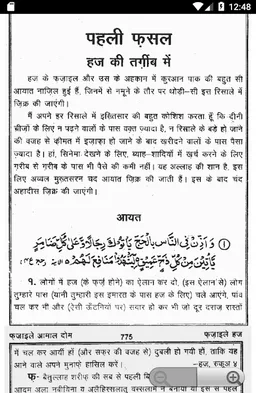 12:48
पहली फ़सल
हज की तर्ग़ीब में
हज के फज़ाइल और उस के अह्काम में कुरआन पाक की बहुत सी
आयात नाज़िल हुई हैं, जिनमें से नमूने के तौर पर थोड़ी-सी इस रिसाले में
ज़िक्र की जाएंगी।
मैं अपने हर रिसाले में इख़्तिसार की बहुत कोशिश करता हूँ कि दीनी
चीज़ों के लिए न पढ़ने वालों के पास वक़्त ज़्यादा है, न रिसाले के बड़े हो जाने
की वजह से क़ीमत में इज़ाफ़ा हो जाने के बाद खरीदने वालों के पास पैसा
ज़्यादा है। हां, सिनेमा देखने के लिए, ब्याह-शादियों में खर्च करने के लिए
ग़रीब से ग़रीब के पास भी पैसे की कमी नहीं। यह अल्लाह की शान है, इस
लिए अव्वल मुख़्तसरन चंद आयात ज़िक्र की जाती हैं। इस के बाद चंद
अहादीस ज़िक्र की जाएंगी।
आयत
① وَاَذِّنْ فِی النَّاسِ بِالْحَجِّ یَاْتُوْكَ رِجَالًا وَّعَلٰی كُلِّ ضَامِرٍ
یَّاْتِیْنَ مِنْ كُلِّ فَجٍّ عَمِیْقٍ لِّیَشْهَدُوْا مَنَافِعَ لَهُمْ
1. लोगों में हज (के फ़र्ज़ होने) का ऐलान कर दो, (इस ऐलान से) लोग
तुम्हारे पास (यानी तुम्हारी इस इमारत के पास हज के लिए) चले आएंगे, पांव
चल कर भी और (ऐसी ऊँटनियों पर) सवार हो कर भी जो दूर दराज़ रास्तों
फज़ाइले आमाल दोम 775 फज़ाइले हज
में चल कर आयी हों (और सफर की वजह से) दुबली हो गयी हों, ताकि यह
आने वाले अपने मुनाफ़े हासिल करें। -हज, रुकूअ 4
फ़- बैतुल्लाह शरीफ़ की सब से पहली
आदम अला नबीयिना व अलैहिस्सलातु वस्सलाम ने बनाया या इस से पहले